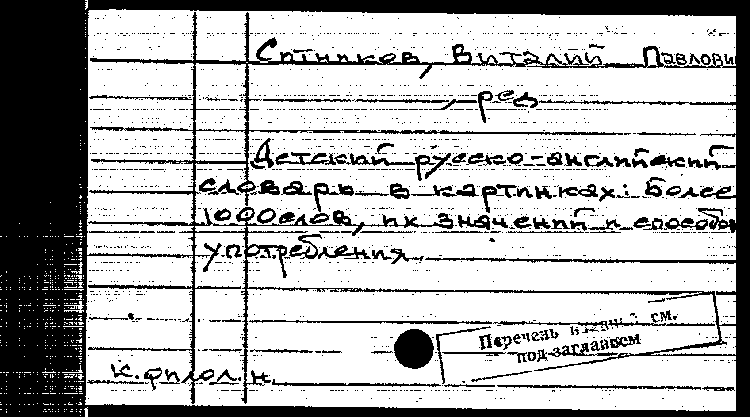 Ситников, Виталий Павлови
, ред
Детский русско-английский
словарь в картинках: Более
1000 слов, их значений и способов
употребления
Перечень изданий см.
под заглавием
к.филол.н.